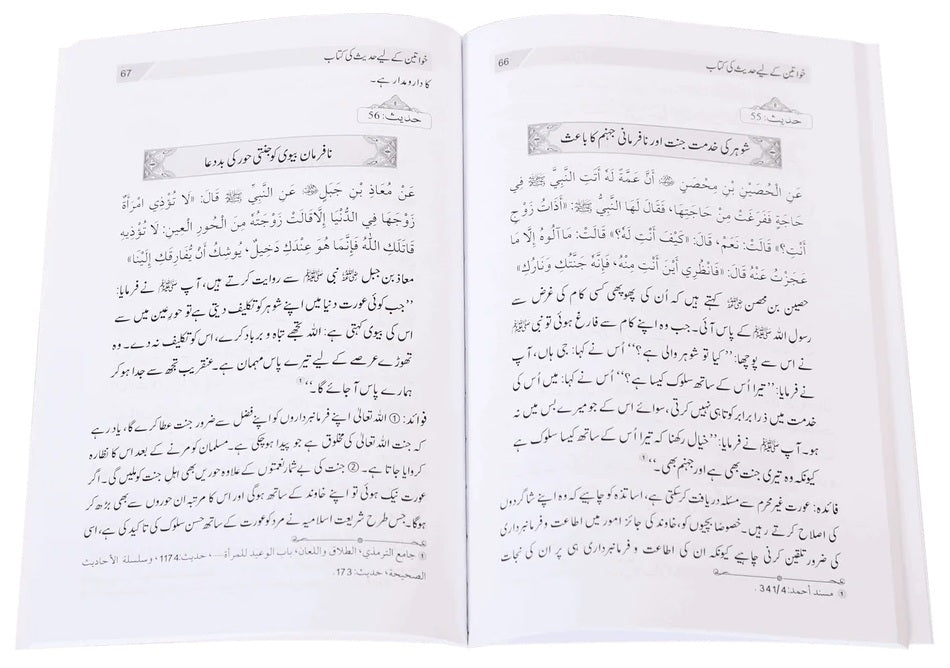 خواتین کے لیے حدیث کی کتاب
66
حدیث: 55
شوہر کی خدمت جنت اور نافرمانی جہنم کا باعث
عَنِ الْحُصَيْنِ بْنِ مِحْصَنٍ ؓ أَنَّ عَمَّةً لَهُ أَتَتِ النَّبِيَّ ﷺ فِي
حَاجَةٍ فَفَرَغَتْ مِنْ حَاجَتِهَا، فَقَالَ لَهَا النَّبِيُّ ﷺ: «أَذَاتُ زَوْجٍ
أَنْتِ؟» قَالَتْ: نَعَمْ، قَالَ: «كَيْفَ أَنْتِ لَهُ؟» قَالَتْ: مَا آلُوهُ إِلَّا مَا
عَجَزْتُ عَنْهُ قَالَ: «فَانْظُرِي أَيْنَ أَنْتِ مِنْهُ، فَإِنَّهُ جَنَّتُكِ وَنَارُكِ»
حصین بن محصن ؓ کہتے ہیں کہ اُن کی پھوپھی کسی کام کی غرض سے
رسول اللہ ﷺ کے پاس آئی۔ جب وہ اپنے کام سے فارغ ہوئی تو نبی ﷺ
نے اس سے پوچھا: ’’کیا تو شوہر والی ہے؟‘‘ اُس نے کہا: جی ہاں، آپ
نے فرمایا: ’’تیرا اُس کے ساتھ سلوک کیسا ہے؟‘‘ اُس نے کہا: میں اُس کی
خدمت میں ذرا برابر کوتاہی نہیں کرتی، سوائے اس کے جو میرے بس میں نہ
ہو۔ آپ نے فرمایا: ’’خیال رکھنا کہ تیرا اُس کے ساتھ کیسا سلوک ہے
کیونکہ وہ تیری جنت بھی ہے اور جہنم بھی۔‘‘ ①
فائدہ: عورت غیر محرم سے مسئلہ دریافت کرسکتی ہے، اساتذہ کو چاہیے کہ وہ اپنے شاگردوں
کی اصلاح کرتے رہیں۔ خصوصاً بچیوں کو، خاوند کی جائز امور میں اطاعت و فرمانبرداری
کی ضرور تلقین کرنی چاہیے کیونکہ ان کی اطاعت و فرمانبرداری ہی پر ان کی نجات
① مسند أحمد: 341/4.
خواتین کے لیے حدیث کی کتاب
67
کا دارومدار ہے۔
حدیث: 56
نافرمان بیوی کو جنتی حور کی بددعا
عَنْ مُعَاذِ بْنِ جَبَلٍ ؓ عَنِ النَّبِيِّ ﷺ قَالَ: «لَا تُؤْذِي امْرَأَةٌ
زَوْجَهَا فِي الدُّنْيَا إِلَّا قَالَتْ زَوْجَتُهُ مِنَ الْحُورِ الْعِينِ: لَا تُؤْذِيهِ
قَاتَلَكِ اللَّهُ فَإِنَّمَا هُوَ عِنْدَكِ دَخِيلٌ، يُوشِكُ أَنْ يُفَارِقَكِ إِلَيْنَا»
معاذ بن جبل ؓ نبی ﷺ سے روایت کرتے ہیں، آپ ﷺ نے فرمایا:
’’جب کوئی عورت دنیا میں اپنے شوہر کو تکلیف دیتی ہے تو حورِعین میں سے
اس کی بیوی کہتی ہے: اللہ تجھے تباہ و برباد کرے، اس کو تکلیف نہ دے۔ وہ
تھوڑے عرصے کے لیے تیرے پاس مہمان ہے۔ عنقریب تجھ سے جدا ہو کر
ہمارے پاس آ جائے گا۔‘‘ ①
فوائد: ① اللہ تعالیٰ اپنے فرمانبرداروں کو اپنے فضل سے ضرور جنت عطا کرے گا، یاد رہے
کہ جنت اللہ تعالیٰ کی مخلوق ہے جو پیدا ہوچکی ہے۔ مسلمان کو مرنے کے بعد اس کا نظارہ
کروایا جاتا ہے۔ ② جنت کی بے شمار نعمتوں کے علاوہ حوریں بھی اہل جنت کو ملیں گی۔ اگر
عورت نیک ہوئی تو اپنے خاوند کے ساتھ ہوگی اور اس کا مرتبہ ان حوروں سے بھی بڑھ کر
ہوگا۔ جس طرح شریعت اسلامیہ نے مرد کو عورت کے ساتھ حسن سلوک کی تاکید کی ہے، اسی
① جامع الترمذي، الطلاق واللعان، باب الوعيد للمرأة....، حديث: 1174، وسلسلة الأحاديث
الصحيحة، حديث: 173.